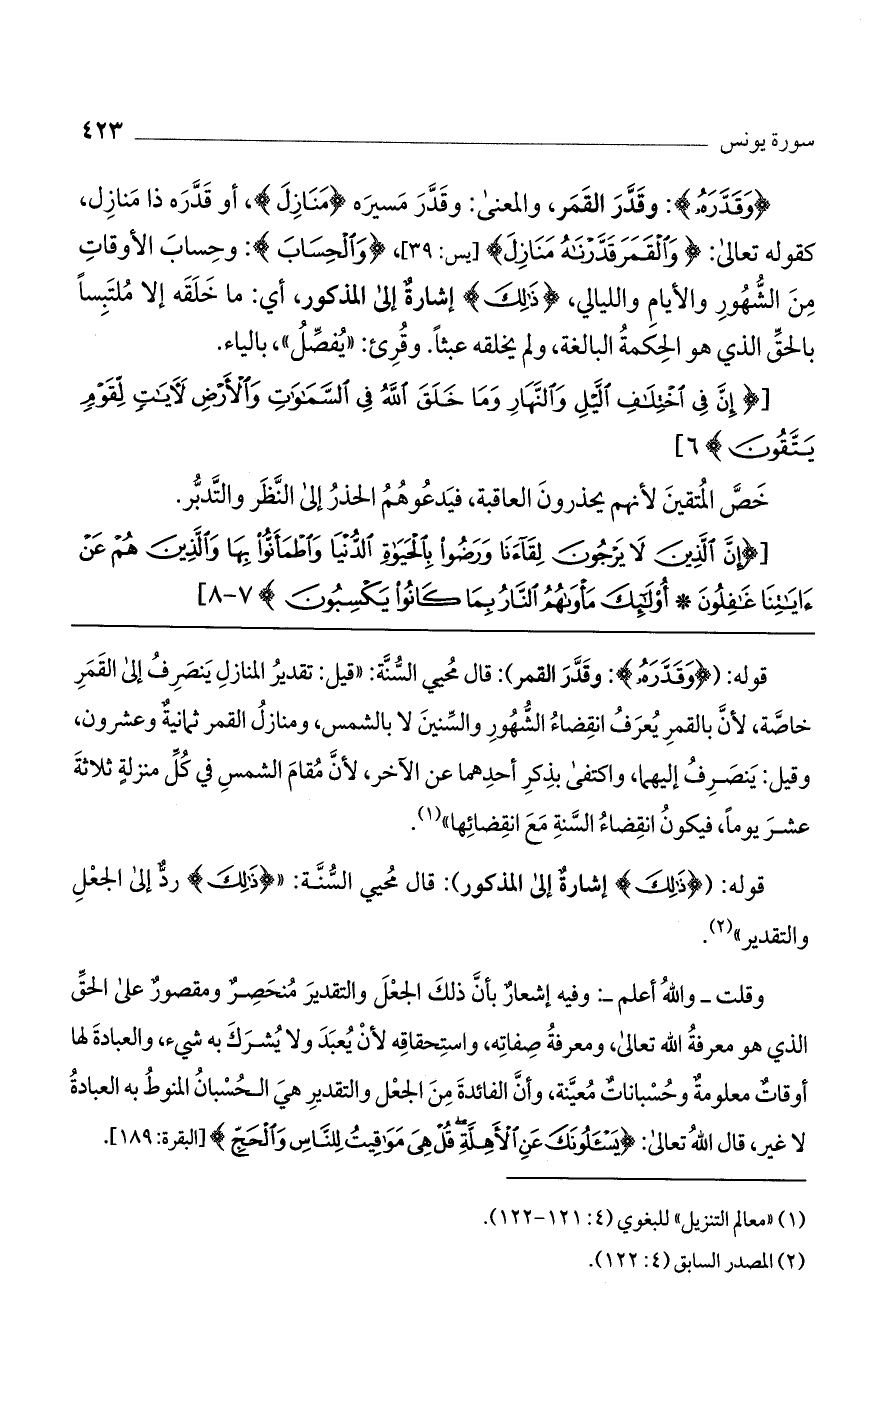 سورة يونس ٤٢٣
﴿وَقَدَّرَهُۥ﴾: وقَدَّرَ القمَر، والمعنىٰ: وقَدَّرَ مَسيرَه ﴿مَنَازِلَ﴾، أو قَدَّرَه ذا مَنازِل،
كقوله تعالىٰ: ﴿وَٱلْقَمَرَ قَدَّرْنَـٰهُ مَنَازِلَ﴾ [يس: ٣٩]، ﴿وَٱلْحِسَابَ﴾: وحِسابَ الأوقاتِ
مِنَ الشُّهُورِ والأيامِ والليالي، ﴿ذَٰلِكَ﴾ إشارةٌ إلىٰ المذكور، أي: ما خَلَقَه إلا مُلتَبِساً
بالحقِّ الذي هو الحِكمةُ البالغة، ولم يخلقه عبثاً. وقُرِئ: «يُفصِّلُ»، بالياء.
[﴿إِنَّ فِى ٱخْتِلَـٰفِ ٱلَّيْلِ وَٱلنَّهَارِ وَمَا خَلَقَ ٱللَّهُ فِى ٱلسَّمَـٰوَٰتِ وَٱلْأَرْضِ لَـَٔايَـٰتٍ لِّقَوْمٍ
يَتَّقُونَ﴾ ٦]
خَصَّ المُتقينَ لأنهم يحذرونَ العاقبة، فيَدعُوهُمُ الحذرُ إلىٰ النَّظَر والتَّدبُّر.
[﴿إِنَّ ٱلَّذِينَ لَا يَرْجُونَ لِقَآءَنَا وَرَضُوا۟ بِٱلْحَيَوٰةِ ٱلدُّنْيَا وَٱطْمَأَنُّوا۟ بِهَا وَٱلَّذِينَ هُمْ عَنْ
ءَايَـٰتِنَا غَـٰفِلُونَ * أُو۟لَـٰٓئِكَ مَأْوَىٰهُمُ ٱلنَّارُ بِمَا كَانُوا۟ يَكْسِبُونَ﴾ ٧-٨]
قوله: (﴿وَقَدَّرَهُۥ﴾: وقَدَّرَ القمر): قال مُحيي السُّنَّة: «قيل: تقديرُ المنازلِ يَنصَرِفُ إلىٰ القَمَرِ
خاصَّة، لأنَّ بالقمرِ يُعرَفُ انقِضاءُ الشُّهُورِ والسِّنينَ لا بالشمس، ومنازلُ القمر ثمانيةٌ وعشرون،
وقيل: يَنصَرِفُ إليهما، واكتفىٰ بذِكرِ أحدِهما عن الآخر، لأنَّ مُقامَ الشمسِ في كُلِّ منزلةٍ ثلاثةَ
عشرَ يوماً، فيكونُ انقِضاءُ السَّنةِ مَعَ انقِضائِها»(١).
قوله: (﴿ذَٰلِكَ﴾ إشارةٌ إلىٰ المذكور): قال مُحيي السُّنَّة: «﴿ذَٰلِكَ﴾ ردٌّ إلىٰ الجعْلِ
والتقدير»(٢).
وقلت ـ واللهُ أعلم ـ: وفيه إشعارٌ بأنَّ ذلكَ الجعْلَ والتقديرَ مُنحَصِرٌ ومقصورٌ علىٰ الحقِّ
الذي هو معرفةُ الله تعالىٰ، ومعرفةُ صِفاتِه، واستِحقاقِه لأنْ يُعبَدَ ولا يُشرَكَ به شيء، والعبادةُ لها
أوقاتٌ معلومةٌ وحُسْباناتٌ مُعيَّنة، وأنَّ الفائدةَ مِنَ الجعْل والتقديرِ هيَ الحُسْبانُ المنوطُ به العبادةُ
لا غير، قال اللهُ تعالىٰ: ﴿يَسْـَٔلُونَكَ عَنِ ٱلْأَهِلَّةِ ۖ قُلْ هِىَ مَوَٰقِيتُ لِلنَّاسِ وَٱلْحَجِّ﴾ [البقرة: ١٨٩].
(١) «معالم التنزيل» للبغوي (٤: ١٢١-١٢٢).
(٢) المصدر السابق (٤: ١٢٢).